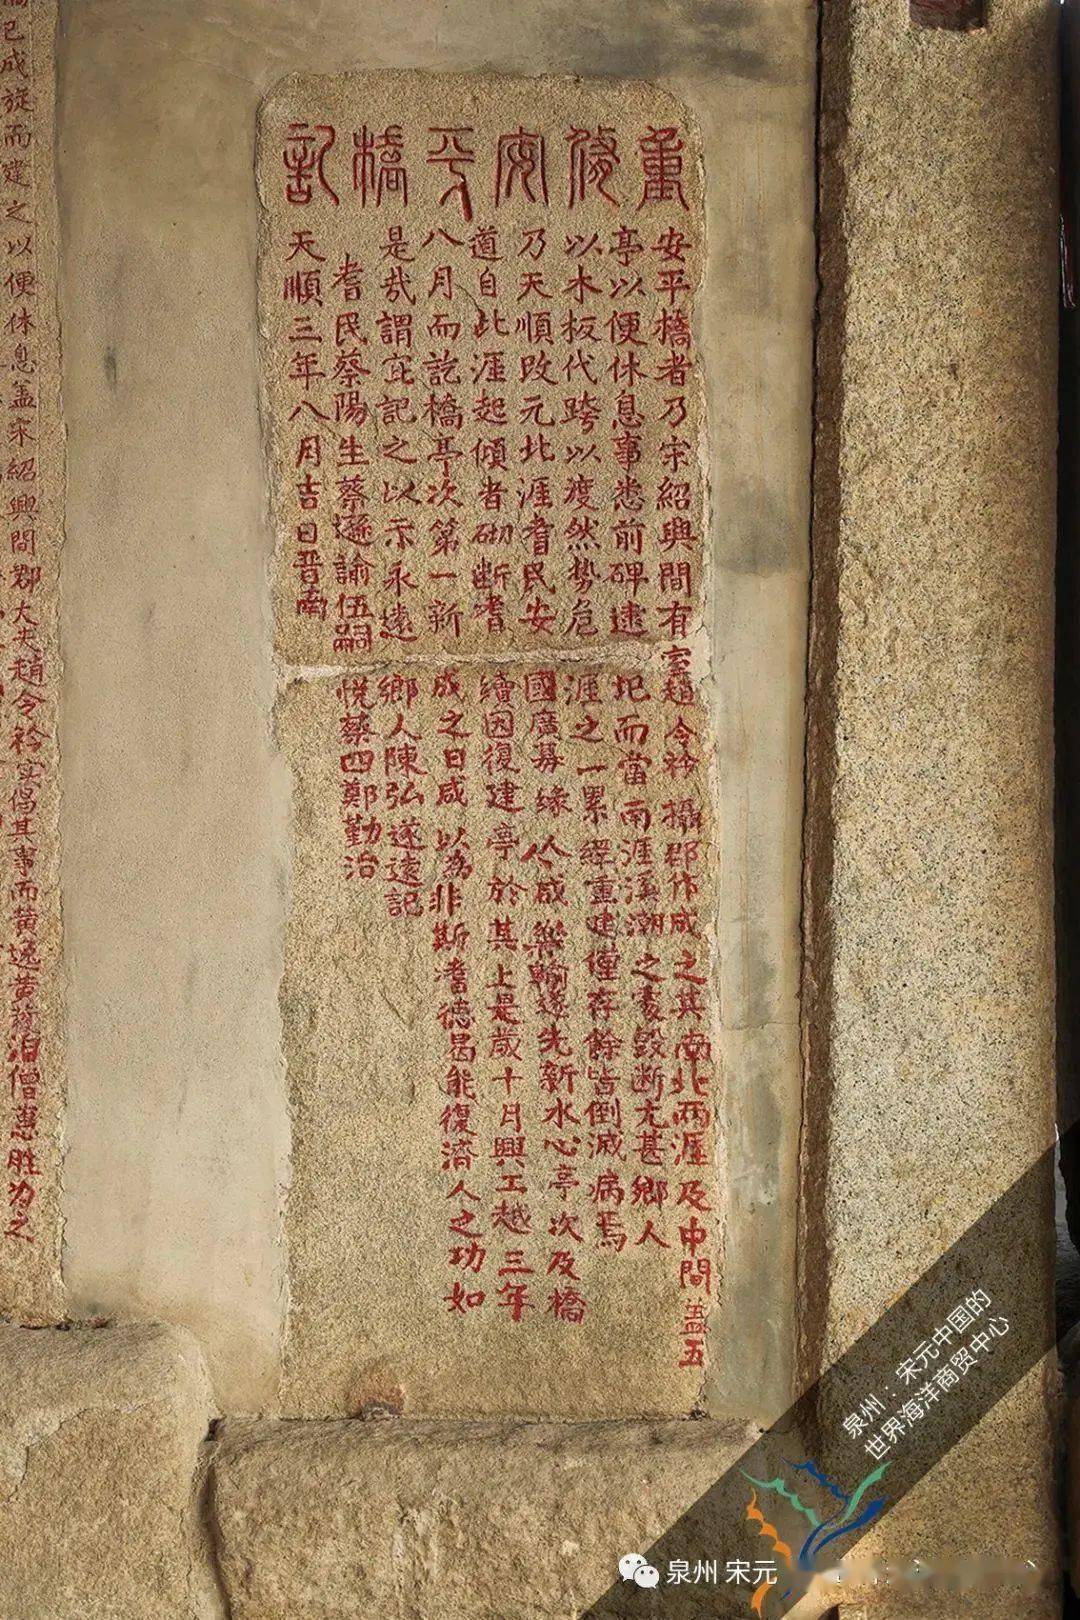 重脩安平橋記
安平橋者乃宋紹興間有室趙令衿攝郡作成之其南北兩涯及中間盖五
亭以便休息事悉前碑逮圯而當南涯溪潮之毀断尤甚鄉人
以木板代跨以渡然势危涯之一累經重建僅存餘皆倒滅病焉
乃天順改元北涯耆民安國廣募缘人人咸樂輸遂先新水心亭次及橋
道自此涯起傾者砌断嗜續因復建亭於其上是歲十月興工越三年
八月而訖橋亭次第一新成之日咸以為非斯耆德曷能復濟人之功如
是哉謂宜記之以示永遠鄉人陳弘遂遠記
耆民蔡陽生蔡遜諭伍嗣悦蔡四鄭勤治
天順三年八月吉日晋南
已成旋而建之以便休息盖宋紹興間郡大夫趙令衿实倡其事而黄逸黄護洎僧惠胜为之
泉州：宋元中国的
世界海洋商贸中心
泉州 宋元